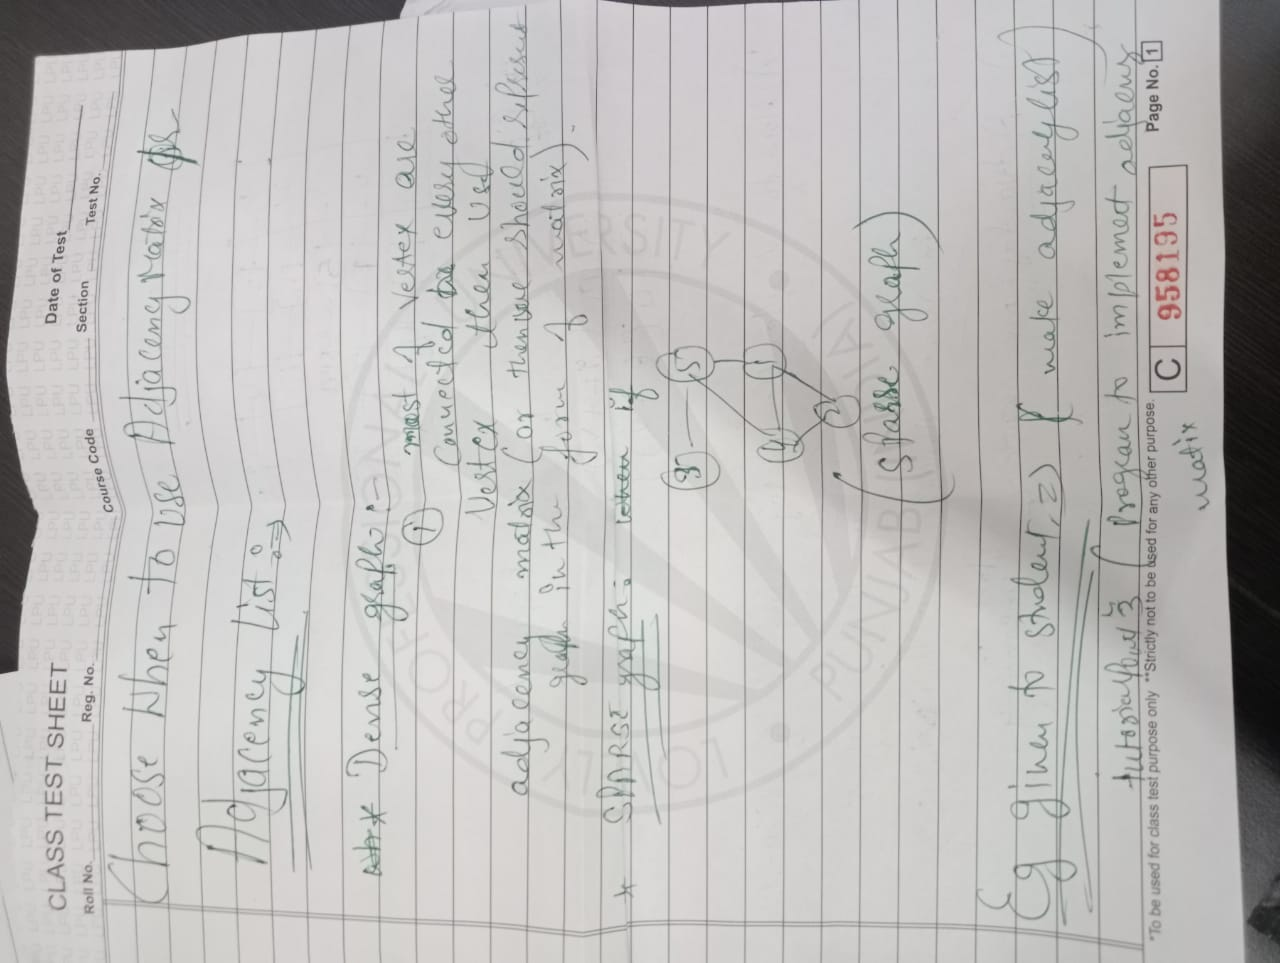 CLASS TEST SHEET
Date of Test
Roll No. Reg. No. Course Code Section Test No.
Choose When to use Adjacency Matrix or
Adjacency List :⇒
* Dense graph :-
① most of vertex are
connected to every other
Vertex then used
adjacency matrix (or then we should represent
graph in the form of matrix).
* SPARSE graph: when if
3 5
4 1
2
(Sparse graph)
Eg given to student ⇒ { make adjacency list }
tutorial four 3 { Program to implemet adjaceny
matix
*To be used for class test purpose only **Strictly not to be used for any other purpose.
C 958195
Page No. 1
LOVELY PROFESSIONAL UNIVERSITY
PUNJAB (INDIA)